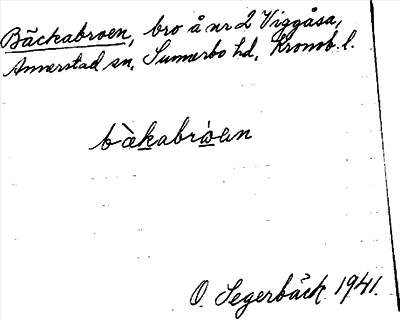 Bäckabroen, bro å nr 2 Viggåsa,
Annerstad sn, Sunnerbo hd, Kronob. l.
bàkabròen
O. Segerbäck 1941.